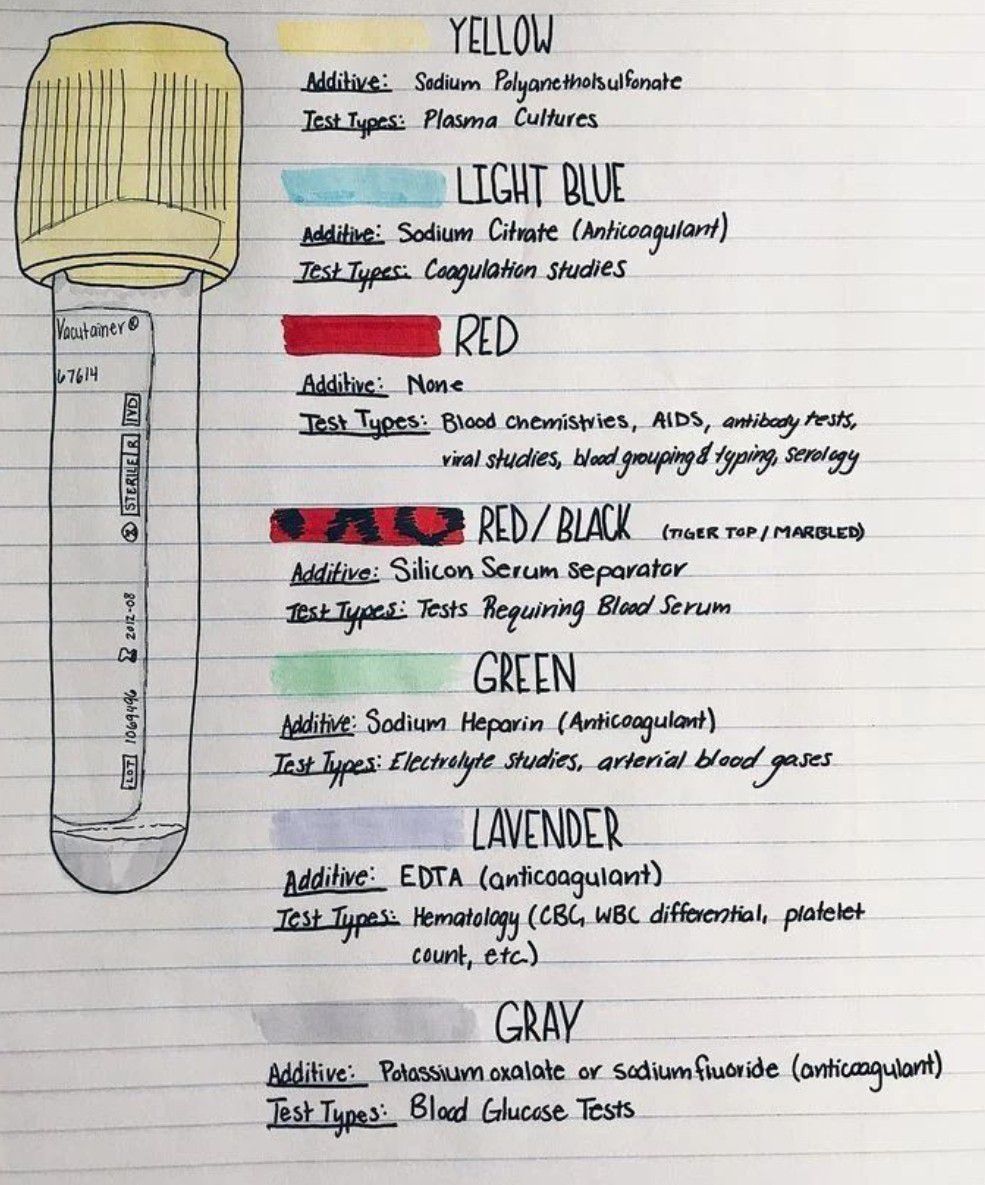 YELLOW
Additive: Sodium Polyanetholsulfonate
Test Types: Plasma Cultures
LIGHT BLUE
Additive: Sodium Citrate (Anticoagulant)
Test Types: Coagulation studies
RED
Additive: None
Test Types: Blood chemistries, AIDS, antibody tests,
viral studies, blood grouping & typing, serology
RED/BLACK (TIGER TOP/MARBLED)
Additive: Silicon Serum separator
Test Types: Tests Requiring Blood Serum
GREEN
Additive: Sodium Heparin (Anticoagulant)
Test Types: Electrolyte studies, arterial blood gases
LAVENDER
Additive: EDTA (anticoagulant)
Test Types: Hematology (CBC, WBC differential, platelet
count, etc.)
GRAY
Additive: Potassium oxalate or sodium fluoride (anticoagulant)
Test Types: Blood Glucose Tests
Vacutainer®
67614
LOT 1069496 2012-08 STERILE R IVD